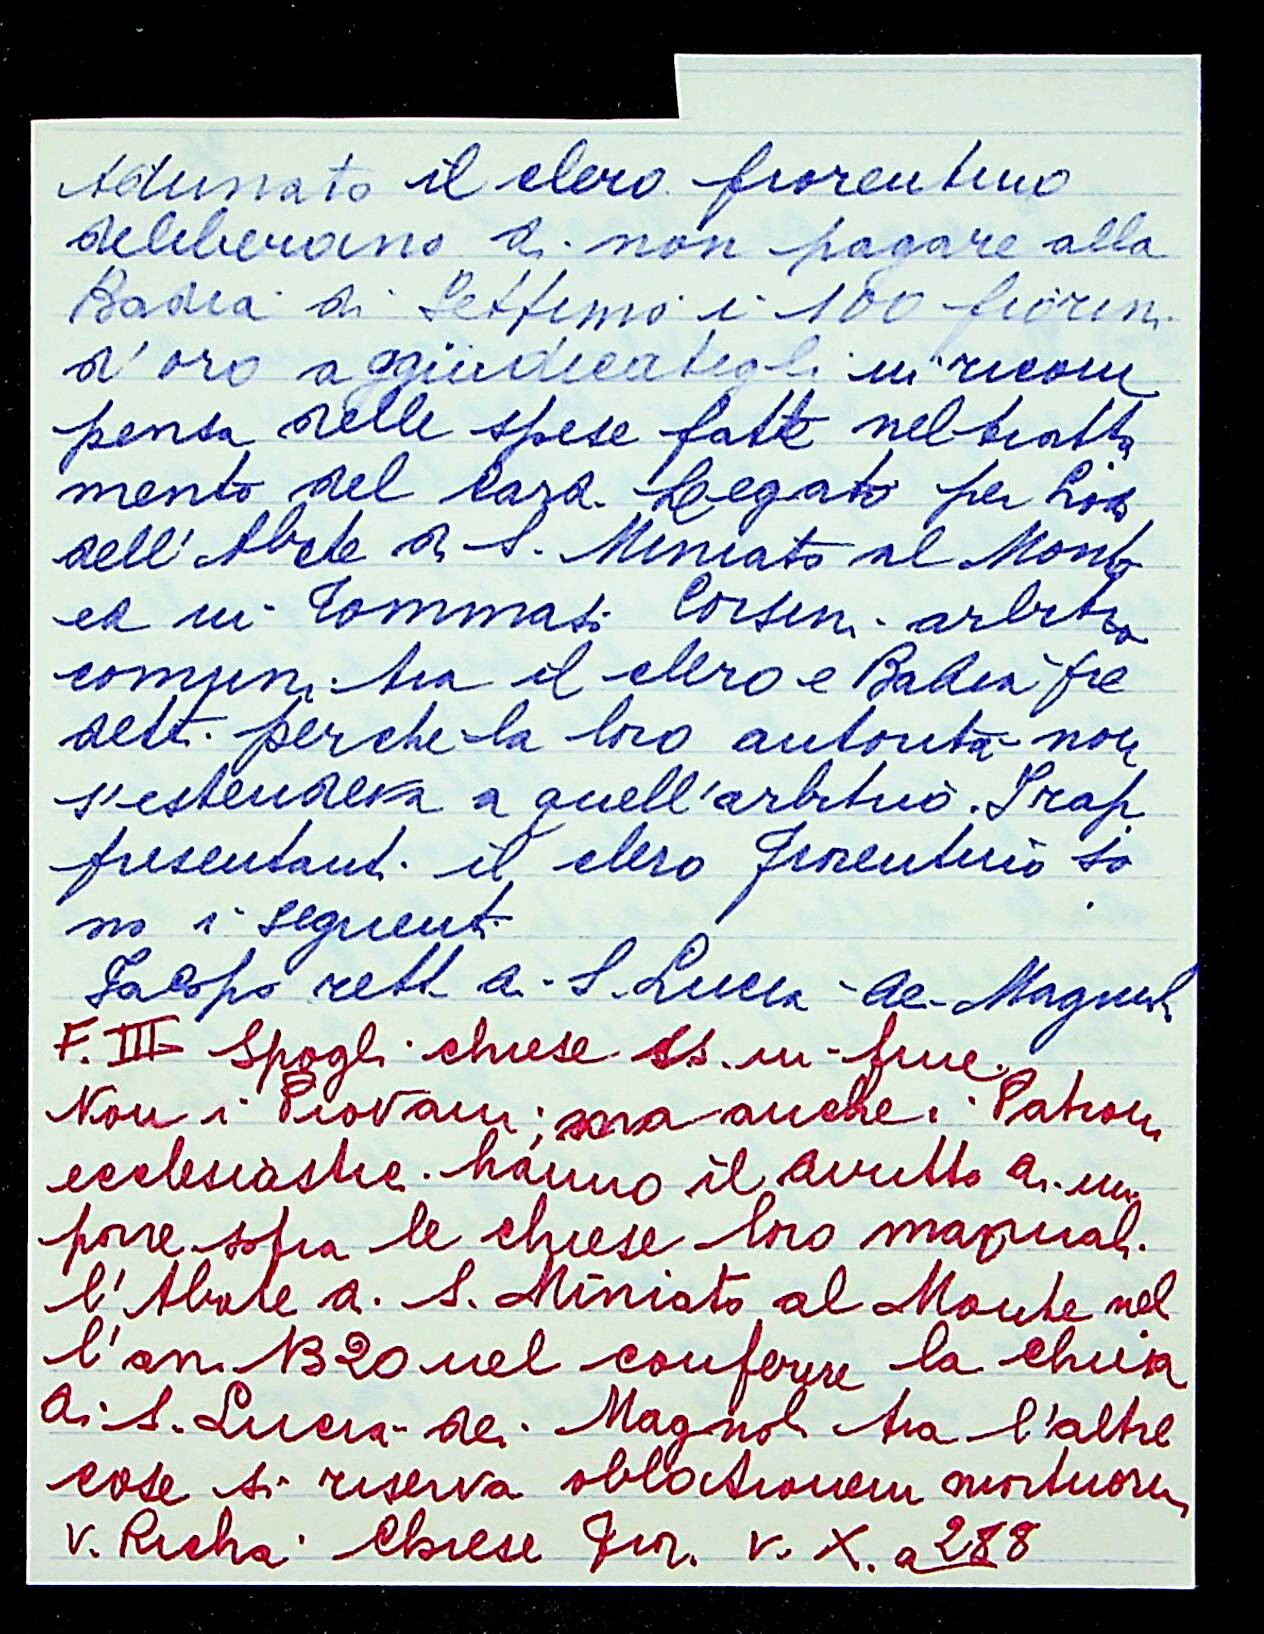 Adunato il clero fiorentino
deliberano di non pagare alla
Badia di Settimo i 100 fiorini
d'oro aggiudicategli in ricom
pensa delle spese fatte nel tratta
mento del Card. Legato per
dell'Abate di S. Miniato al Monte
ed in Tommasi Corsini arbitro
comuni tra il clero e Badia pre
detti perche la loro autorità non
s'estendeva a quell'arbitrio. I rap
presentanti il clero fiorentino so
no i seguenti
Jacopo rett di S. Lucia de Magnoli
F. III Spogli chiese ss. in fine.
Non i Piovani; ma anche i Patroni
ecclesiastici hanno il diritto di im
porre sopra le chiese loro manuali.
l'Abate di S. Miniato al Monte nel
l'an. 1320 nel conferire la chiesa
di S. Lucia dei Magnoli tra l'altre
cose si riserva oblationem mortuorum
V. Richa Chiese Fior. V. X. a 288